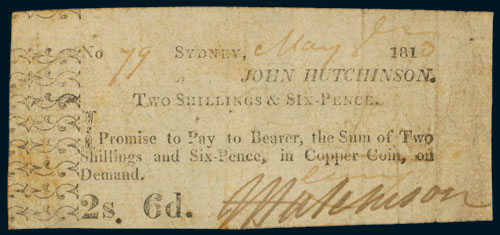 No 79 SYDNEY, May 181
JOHN HUTCHINSON.
TWO SHILLINGS & SIX-PENCE.
I Promise to Pay to Bearer, the Sum of Two
Shillings and Six-Pence, in Copper Coin, on
Demand.
2s. 6d. J Hutchinson